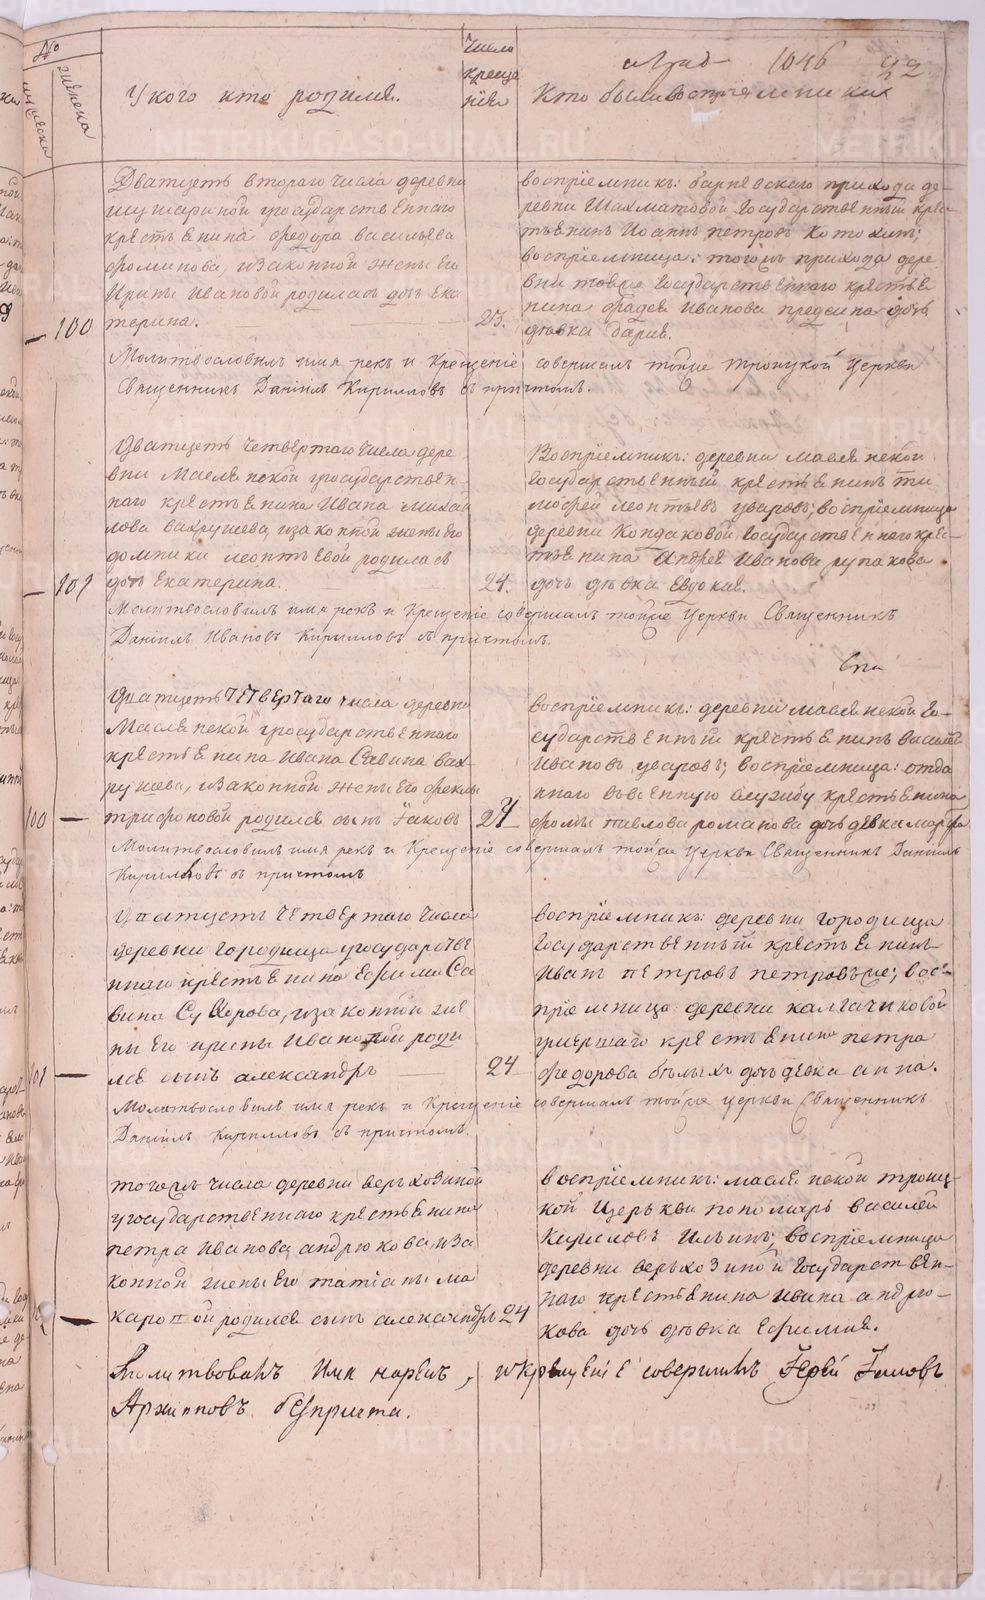 №
мужеска
женска
У кого кто родился.
Число
креще
нія
1846
Кто были воспріемники
Дватцеть втораго числа деревни
государственнаго
крестьянина федора васильева
фоминова, изаконной жены его
Ирины Ивановой родилась дочь Ека
100
терина.
23.
воспріемникъ: барневскаго прихода де-
ревни Шахматовой Государственный крес-
тьянинъ Иоаннъ петровъ
воспріемница: тогожъ прихода дере
вни тойже Государственнаго крестья
нина фадея Иванова дочь
дѣвка
Молитвословилъ имя рекъ и Крещеніе совершалъ тойже троицкой Церкви
Священникъ Даніилъ Кирилловъ съ причтомъ.
Дватцеть четвертаго числа дере
вни Маслянской государствен-
наго крестьянина Ивана Михай
лова вахрушева, изаконной жены его
домники леонтьевой родилась
101
дочь Екатерина.
24.
Воспріемникъ: деревни маслянской
Государственный крестьянинъ ти
мофей леонтьевъ уваровъ; воспріемница
деревни Кондаковой Государственнаго крес-
тьянина Андрея Иванова русакова
дочь дѣвка Евдокия.
Молитвословилъ имя рекъ и Крещеніе совершалъ тойже Церкви Священникъ
Даніилъ Ивановъ Кирилловъ съ причтомъ.
Дватцеть четвертаго числа деревни
Маслянской государственнаго
крестьянина Ивана Савина вах
рушева, изаконной жены его феклы
100
трифоновой родился сынъ Іаковъ
24
воспріемникъ: деревни маслянской го-
сударственный крестьянинъ василей
Ивановъ уваровъ; воспріемница: отда
ннаго въвоенную службу крестьянина
фомы павлова романова дочь девка марфа
Молитвословилъ имя рекъ и Крещеніе совершалъ тойже Церкви Священникъ Даніилъ
Кирилловъ съ причтомъ
Дватцеть четвертаго числа
деревни Городища государстве
ннаго крестьянина Ефима Са
вина Сухорова, изаконной же
ны его ирины Ивановой роди
101
лся сынъ александръ
24
воспріемникъ: деревни городища
Государственный крестьянинъ
Иванъ петровъ воc-
пріемница деревни калгачиковой
умершаго крестьянина петра
федорова бѣлыхъ дочь девка анна.
Молитвословилъ имя рекъ и Крещеніе совершалъ тойже церкви Священникъ
Даніилъ Кирилловъ съ причтомъ.
тогожъ числа деревни верхозиной
государственнаго крестьянина
петра Иванова андрюкова, иза
конной жены его татіаны ма
каровой родился сынъ александръ
24
воспріемникъ: маслянской троиц-
кой церькви пономарь василей
Кириловъ Ильинъ; воспріемница
деревни верьхозиной Государствен-
наго крестьянина ивана андрю-
кова дочь дѣвка Ефимия.
Молитвовалъ имя нарекъ, и Крещеніе совершилъ Іерей Іаковъ
Архиповъ безпричта.
METRIKI.GASO-URAL.RU